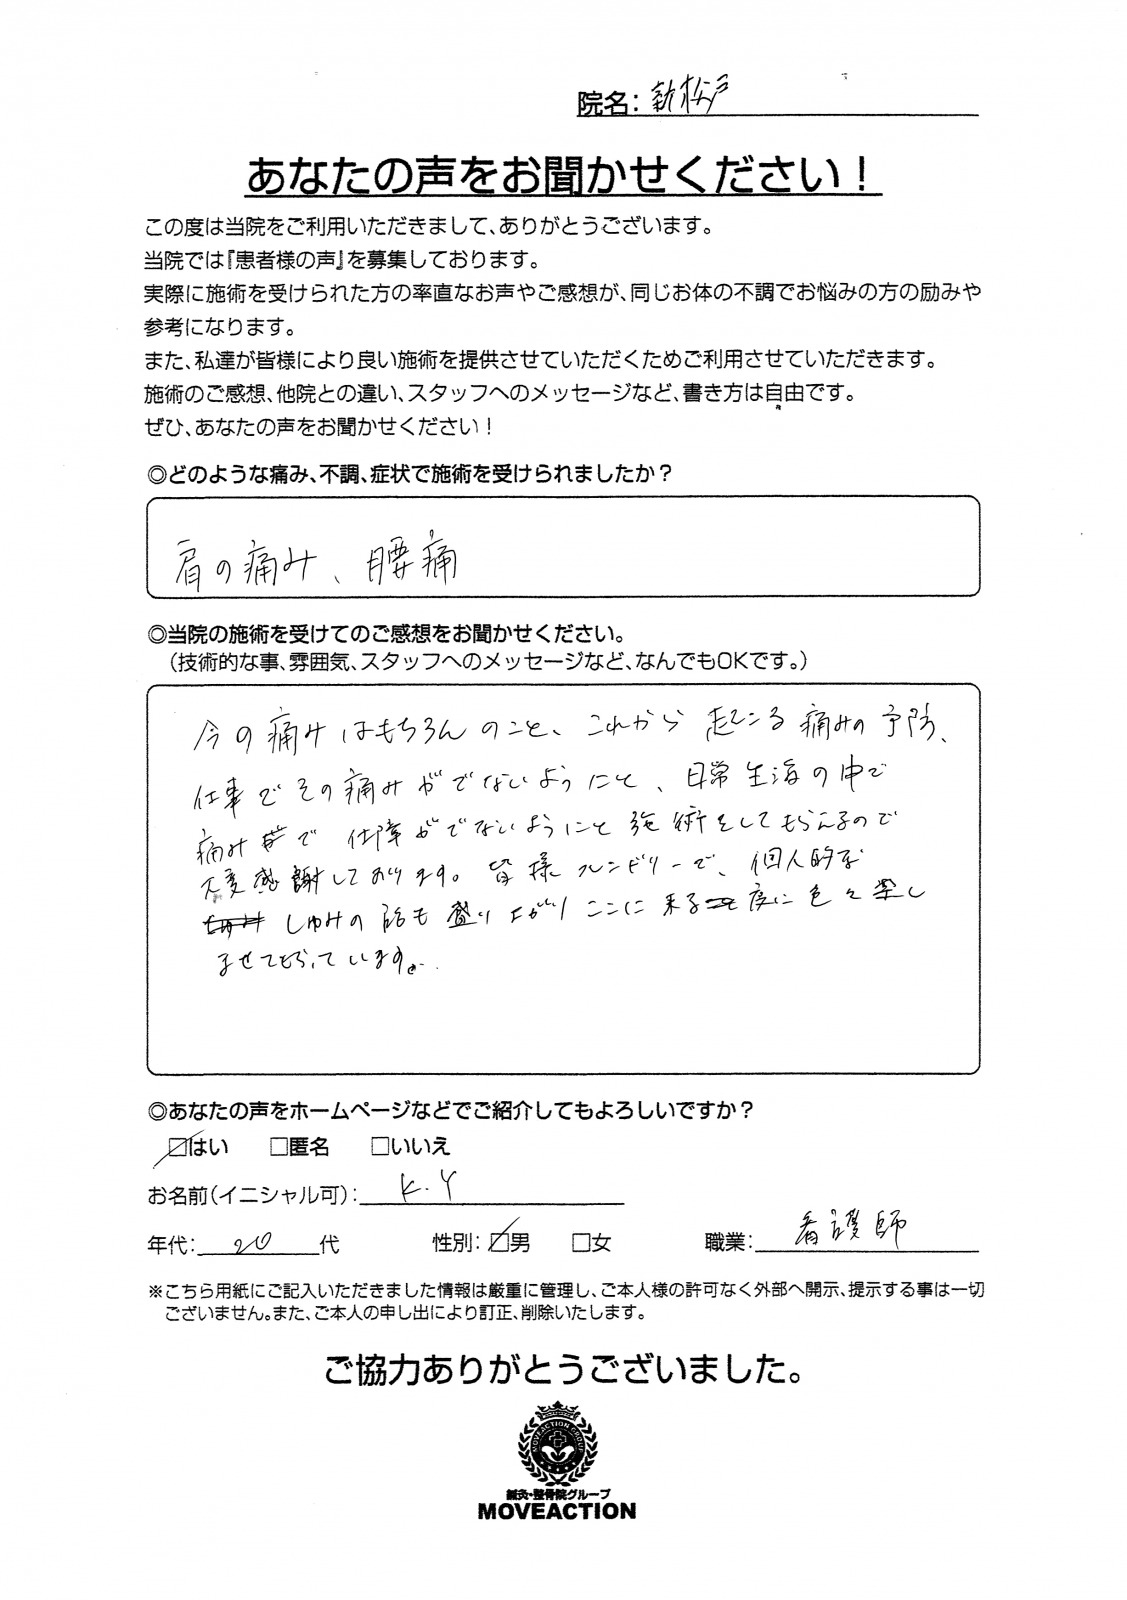 院名: 新松戸
あなたの声をお聞かせください！
この度は当院をご利用いただきまして、ありがとうございます。
当院では『患者様の声』を募集しております。
実際に施術を受けられた方の率直なお声やご感想が、同じお体の不調でお悩みの方の励みや
参考になります。
また、私達が皆様により良い施術を提供させていただくためご利用させていただきます。
施術のご感想、他院との違い、スタッフへのメッセージなど、書き方は自由です。
ぜひ、あなたの声をお聞かせください！
◎どのような痛み、不調、症状で施術を受けられましたか？
肩の痛み、腰痛
◎当院の施術を受けてのご感想をお聞かせください。
（技術的な事、雰囲気、スタッフへのメッセージなど、なんでもOKです。）
今の痛みはもちろんのこと、これから起こる痛みの予防、
仕事でその痛みがでないようにと、日常生活の中で
痛み等で 仕障がでないようにと施術をしてもらえるので
大変感謝しております。皆様フレンドリーで、個人的な
しゅみの話も盛り上がりここに来る度に色々楽し
ませてもらっています。
◎あなたの声をホームページなどでご紹介してもよろしいですか？
☑はい □匿名 □いいえ
お名前（イニシャル可）: K.Y
年代: 20 代 性別: ☑男 □女 職業: 看護師
※こちら用紙にご記入いただきました情報は厳重に管理し、ご本人様の許可なく外部へ開示、提示する事は一切
ございません。また、ご本人の申し出により訂正、削除いたします。
ご協力ありがとうございました。
MOVEACTION GROUP
鍼灸・整骨院グループ
MOVEACTION